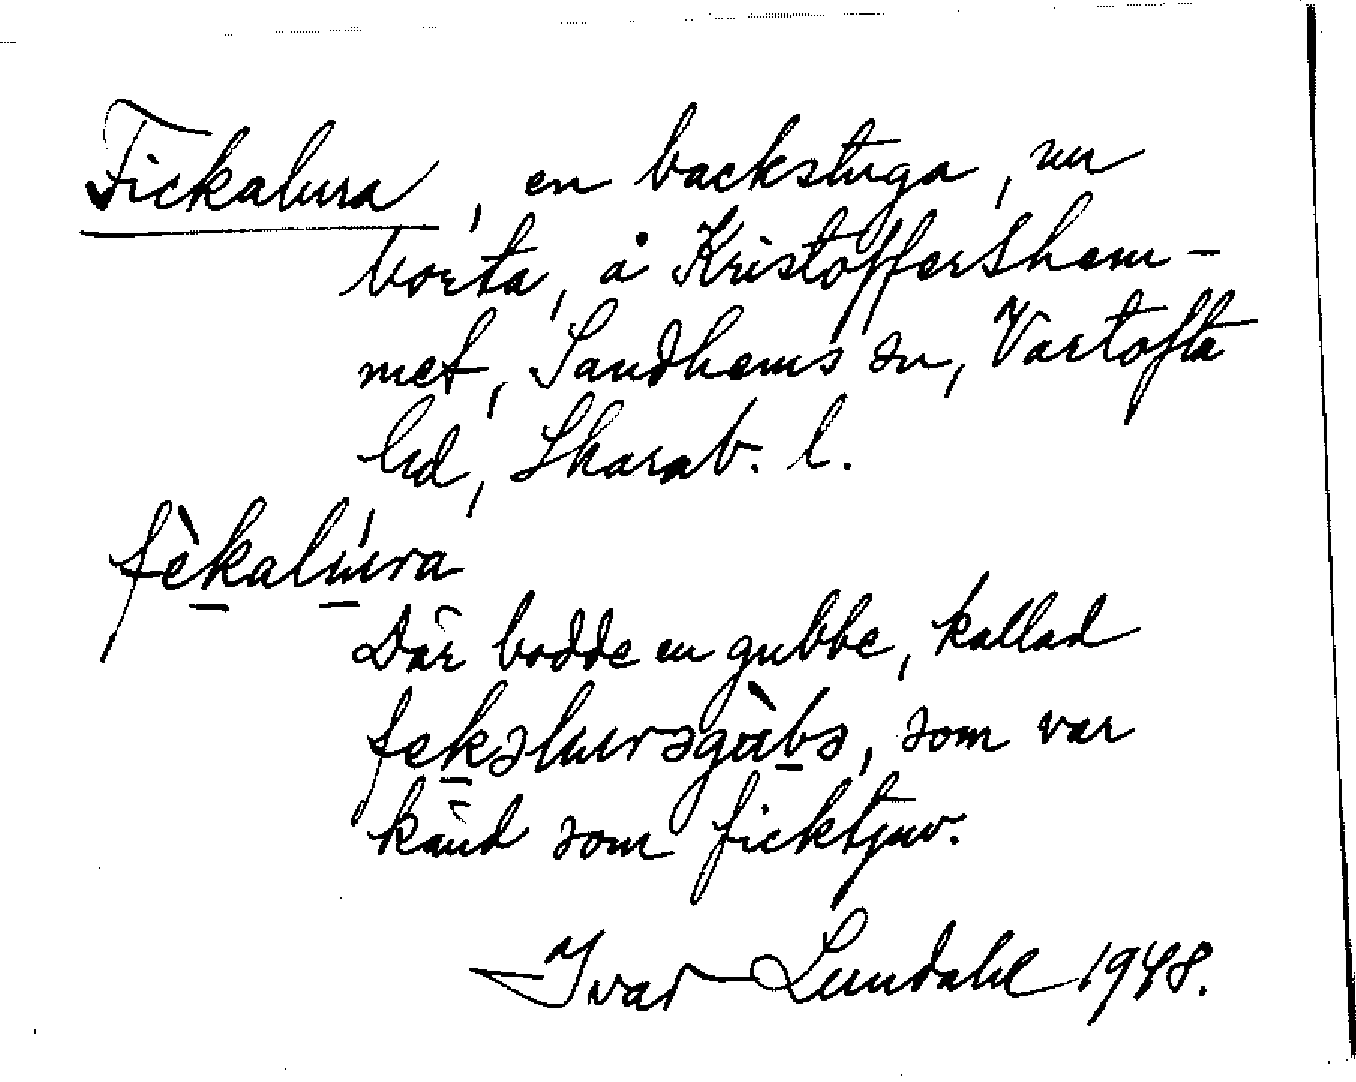 Fickalura, en backstuga, nu
borta, å Kristoffershem-
met, Sandhems sn, Vartofta
hd, Skarab. l.
fèkalúra
Där bodde en gubbe, kallad
fekəlurəgùbə, som var
känd som ficktjuv.
Ivar Lundahl 1948.